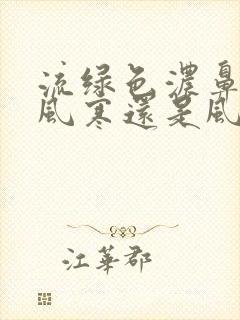 流绿色濃鼻
風寒還是風
江華郡